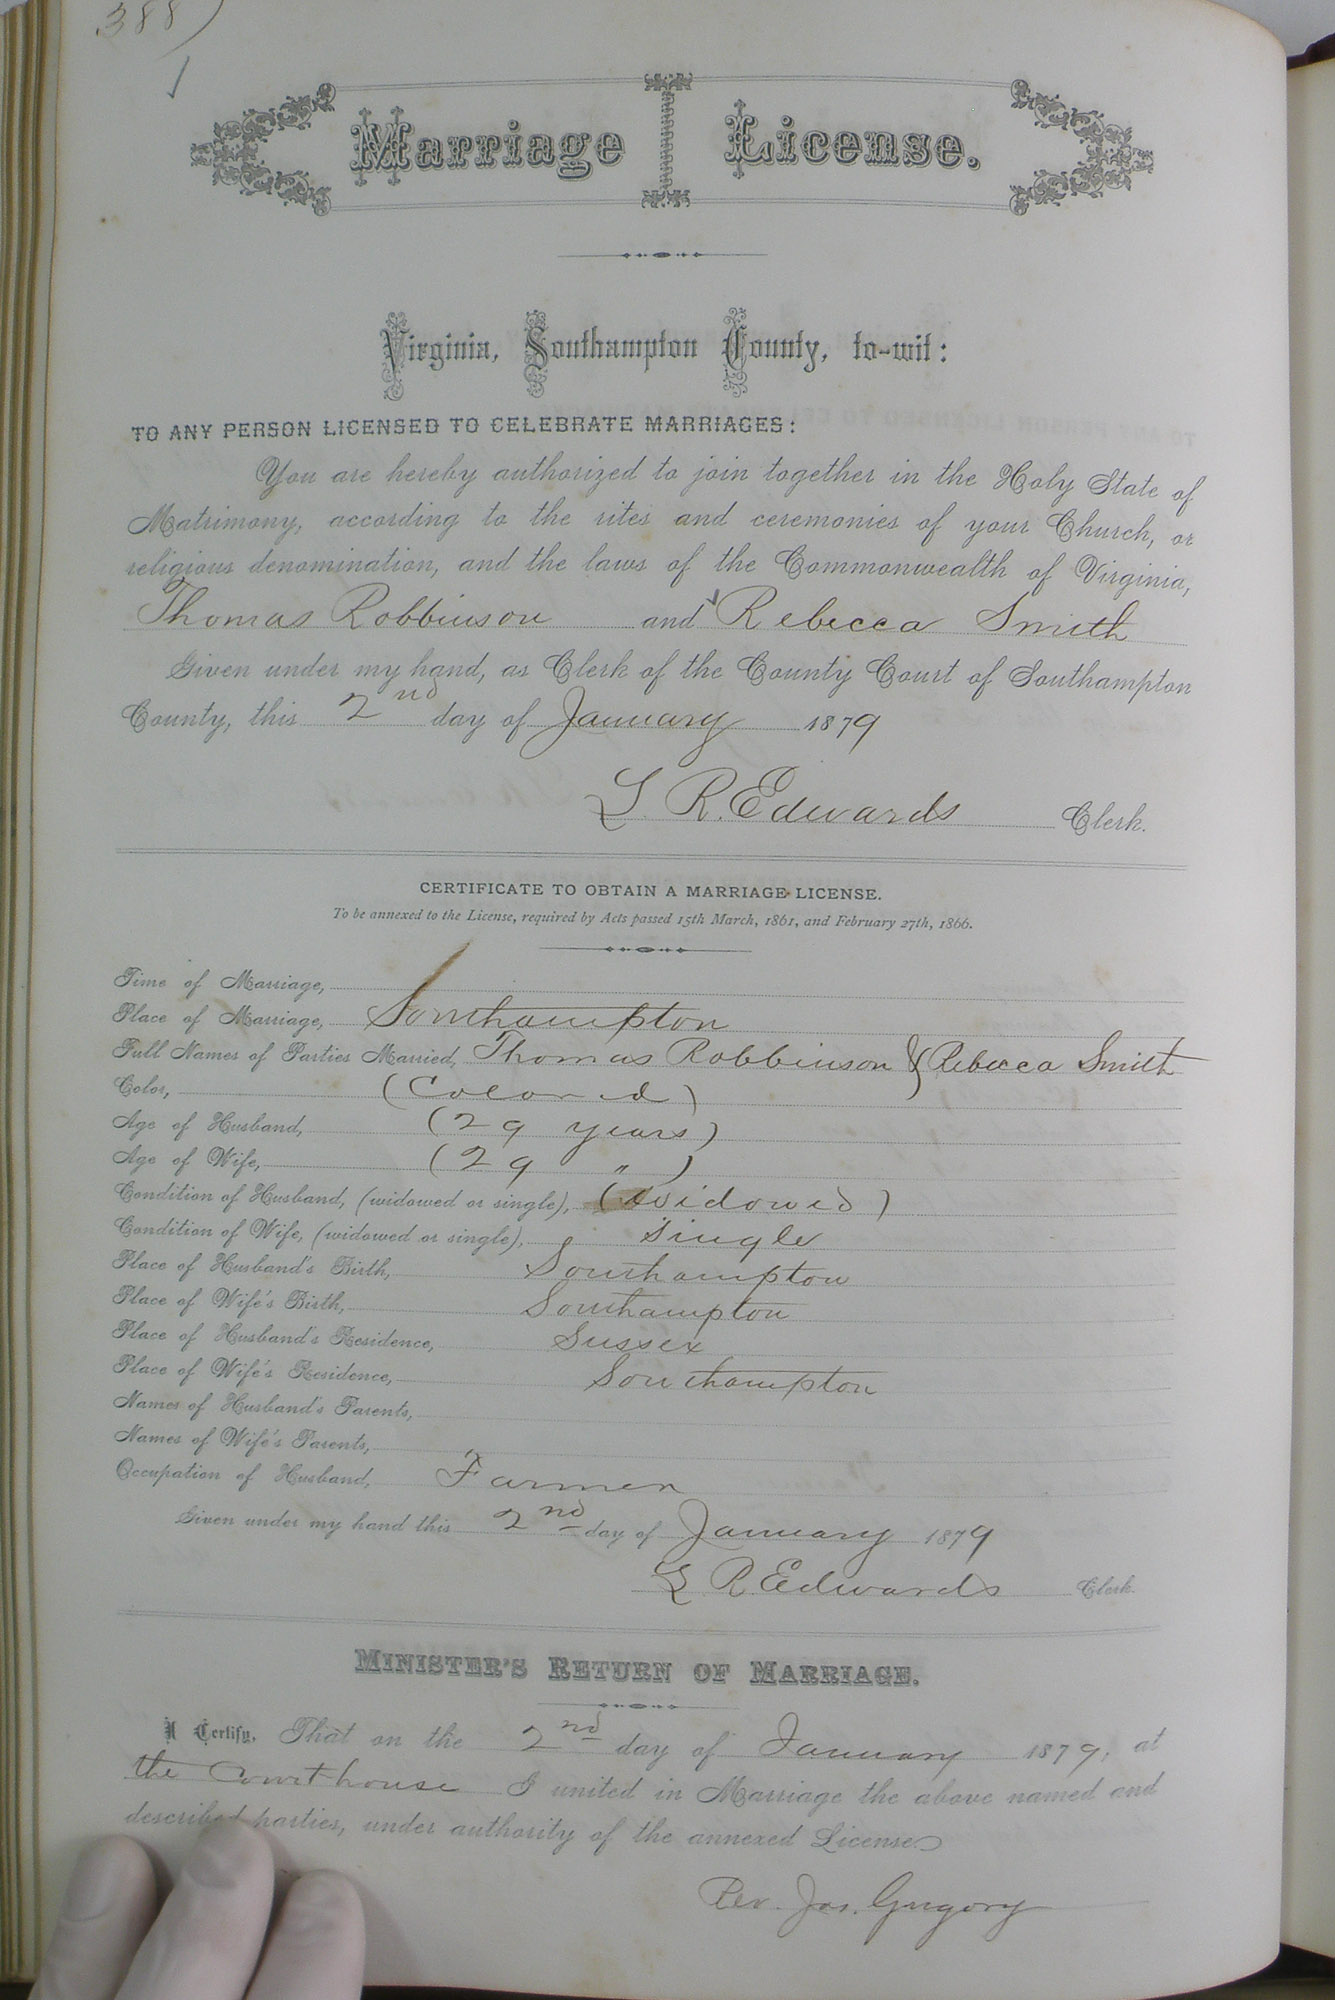 388)
Marriage License.
Virginia, Southampton County, to-wit:
TO ANY PERSON LICENSED TO CELEBRATE MARRIAGES:
You are hereby authorized to join together in the Holy State of
Matrimony, according to the rites and ceremonies of your Church, or
religious denomination, and the laws of the Commonwealth of Virginia,
Thomas Robbinson and Rebecca Smith
Given under my hand, as Clerk of the County Court of Southampton
County, this 2nd day of January 1879
L. R. Edwards Clerk.
CERTIFICATE TO OBTAIN A MARRIAGE LICENSE.
To be annexed to the License, required by Acts passed 15th March, 1861, and February 27th, 1866.
Time of Marriage,
Place of Marriage, Southampton
Full Names of Parties Married, Thomas Robbinson & Rebecca Smith
Color, (Colored)
Age of Husband, (29 years)
Age of Wife, (29 ")
Condition of Husband, (widowed or single), (Widowed)
Condition of Wife, (widowed or single), Single
Place of Husband's Birth, Southampton
Place of Wife's Birth, Southampton
Place of Husband's Residence, Sussex
Place of Wife's Residence, Southampton
Names of Husband's Parents,
Names of Wife's Parents,
Occupation of Husband, Farmer
Given under my hand this 2nd day of January 1879
L R Edwards Clerk.
MINISTER'S RETURN OF MARRIAGE.
I Certify, That on the 2nd day of January 1879, at
the Courthouse I united in Marriage the above named and
described parties, under authority of the annexed License.
Rev. Jas. Gregory